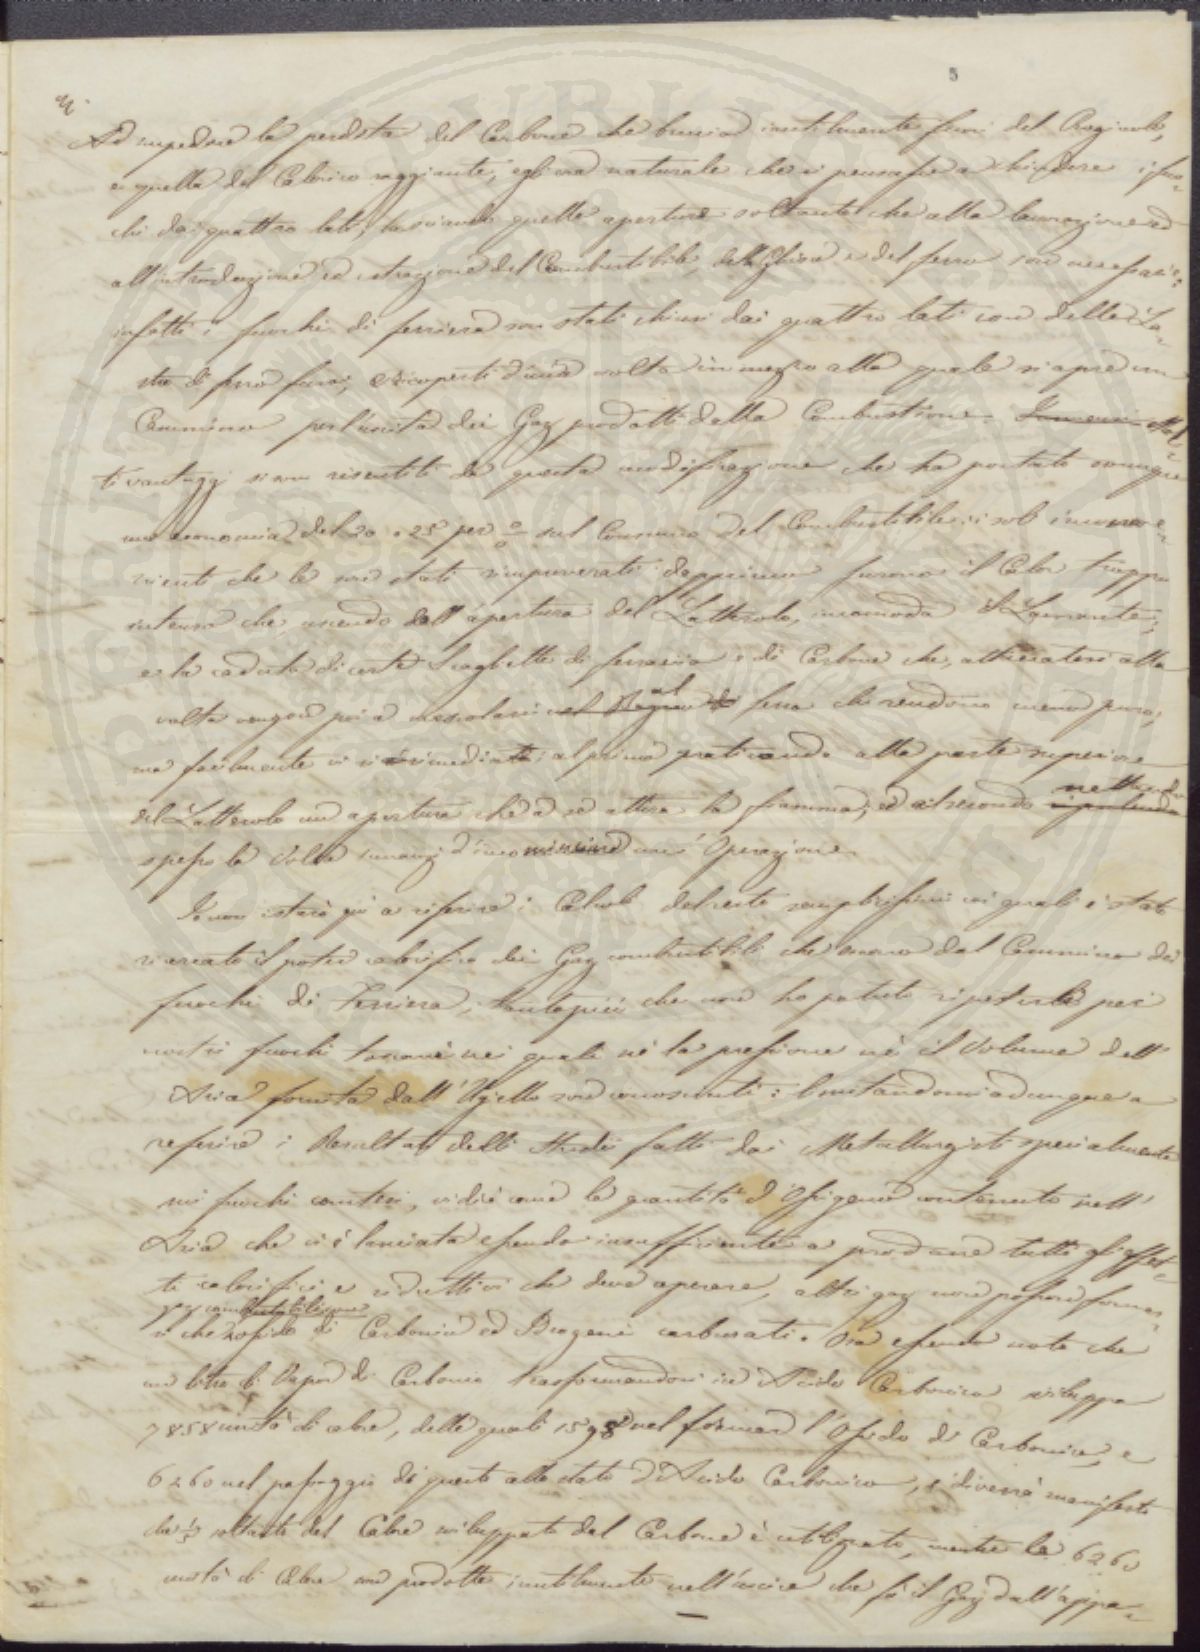 5
Ad impedire la perdita del Carbone che brucia inutilmente fuori del Crogiuolo,
e quella del Calorico raggiante, egli era naturale che si pensasse a chiudere i fuo-
chi dai quattro lati, lasciando quelle aperture soltanto che alla lavorazione ed
all'introduzione ed estrazione del Combustibile, della Ghisa e del ferro son necessarie;
infatti i fuochi di ferriera son stati chiusi dai quattro lati con delle La-
stre di ferro fuso, e ricoperti d'una volta in mezzo alla quale si apre un
Cammino per l'uscita dei Gaz prodotti dalla Combustione. Mol-
ti vantaggi si son risentiti da questa modificazione che ha portato ovunque
una economia del 20 a 25 per % sul Consumo del Combustibile: i soli inconve-
nienti che le son stati rimproverati dapprima furono il Calor troppo
intenso che, uscendo dall'apertura del Latterolo, incomoda il Lavorante;
e la caduta di certe Scagliette di ferraccio e di Carbone che, attaccatesi alla
volta vengon poi a mescolarsi al ferro che rendono meno puro;
ma facilmente vi si è rimediato: al primo praticando alla parte superiore
del Latterolo un apertura che a se attira la fiamma, ed al secondo nettando
spesso la Volta innanzi d'incominciare un'Operazione.
Io non istarò qui a riferire i Calcoli del resto semplicissimi coi quali è stato
ricercato il poter calorifico dei Gaz combustibili che escono dal Cammino dei
fuochi di Ferriera, tantopiù che non ho potuto ripeterli pei
nostri fuochi toscani nei quali nè la pressione nè il Volume dell'
Aria fornita dall'Ugello son conosciuti: limitandomi adunque a
referire i Resultati delli Studi fatti dai Metallurgisti specialmente
nei fuochi contesi, vidi come la quantità d'Ossigeno contenuto nell'
Aria che vi è lanciata essendo insufficiente a produrre tutti gli effet-
ti calorifici e riduttivi che deve operare, altri gaz non possono formar-
gaz combustibili
si che Ossido di Carbonio ed Idrogeni carburati. Ora essendo noto che
un litro di Vapor di Carbonio trasformandosi in Acido Carbonico sviluppa
7858 unità di calore, delle quali 1598 nel formar l'Ossido di Carbonio, e
6260 nel passaggio di questo allo stato d'Acido Carbonico, si diverrà manifesto
che ⅕ soltanto del Calore sviluppato dal Carbone è utilizzato, mentre le 6260
unità di Calore son prodotte inutilmente nell'uscire che fa il Gaz dall'appa-